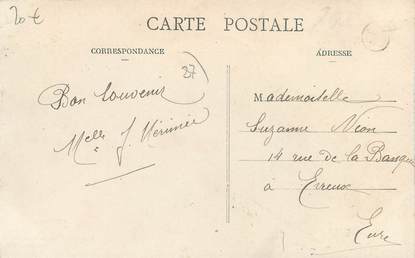 20 €
CARTE POSTALE
CORRESPONDANCE
ADRESSE
37
Bon Souvenir
Melle J. Mérimée
Mademoiselle
Suzanne Nion
14 rue de la Banque
à Evreux
Eure